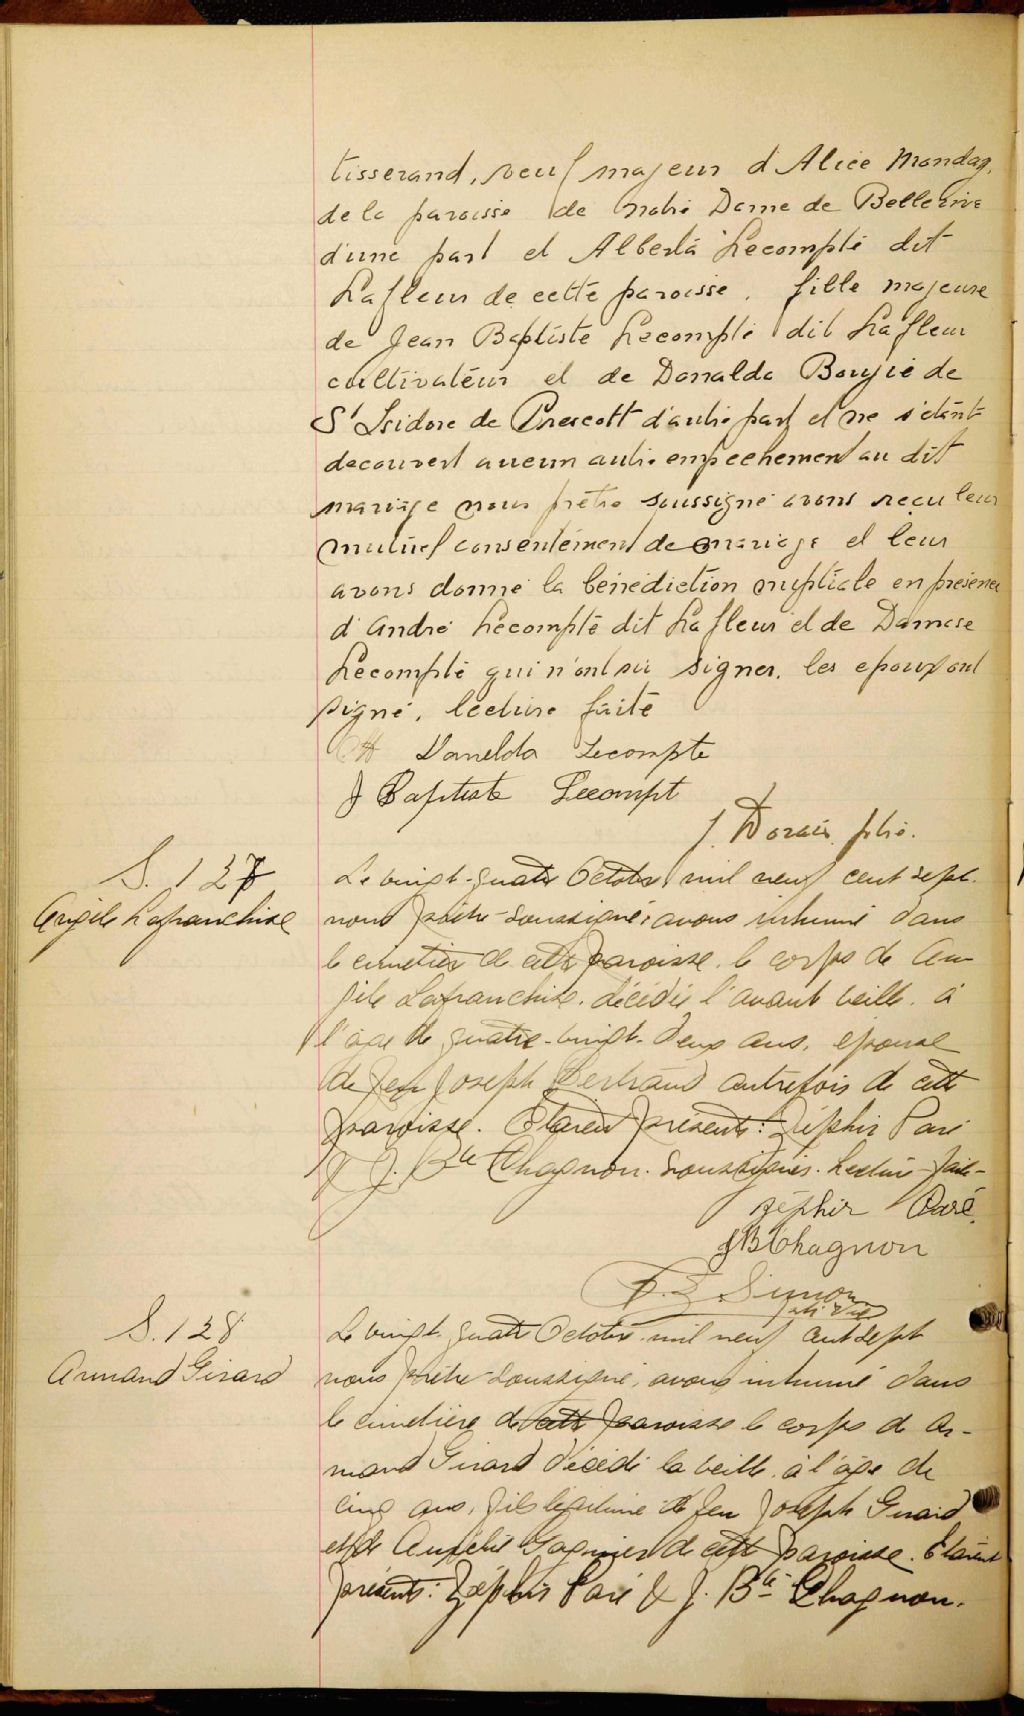 tisserand, veuf majeur d'Alice Monday,
de la paroisse de Notre Dame de Bellerive
d'une part et Alberta Lecompte dit
Lafleur de cette paroisse, fille majeure
de Jean Baptiste Lecompte dit Lafleur
cultivateur et de Donalda Bougie de
St Isidore de Prescott d'autre part et ne s'étant
decouvert aucun autre empechement au dit
mariage nous prêtre soussigné avons reçu leur
mutuel consentement de mariage et leur
avons donné la bénédiction nuptiale en présence
d'André Lecompte dit Lafleur et de Damase
Lecompte qui n'ont su signer, les epoux ont
signé, lecture faite
Donelda Lecompte
J Baptiste Lecompt
J. Dorais ptre.
S. 127
Angèle Lafranchise
Le vingt-quatre Octobre, mil neuf cent sept
nous prêtre-soussigné, avons inhumé dans
le cimetière de cette paroisse, le corps de An
gèle Lafranchise, décédée l'avant veille, à
l'âge de quatre-vingt-deux ans, épouse
de feu Joseph Bertrand autrefois de cette
paroisse. Etaient présents: Zéphir Paré
& J. Bte Chagnon. Soussignés. Lecture faite-
Zéphir Paré
JB Chagnon
Simon
S. 128
Armand Girard
Le vingt-quatre Octobre mil neuf cent sept
nous prêtre-soussigné, avons inhumé dans
le cimetière de cette paroisse le corps de Ar-
mand Girard décédé la veille, à l'âge de
cinq ans, fils légitime de feu Joseph Girard
et de Aurélie Gagnier de cette paroisse. Etaient
présents: Zéphir Paré & J. Bte Chagnon.